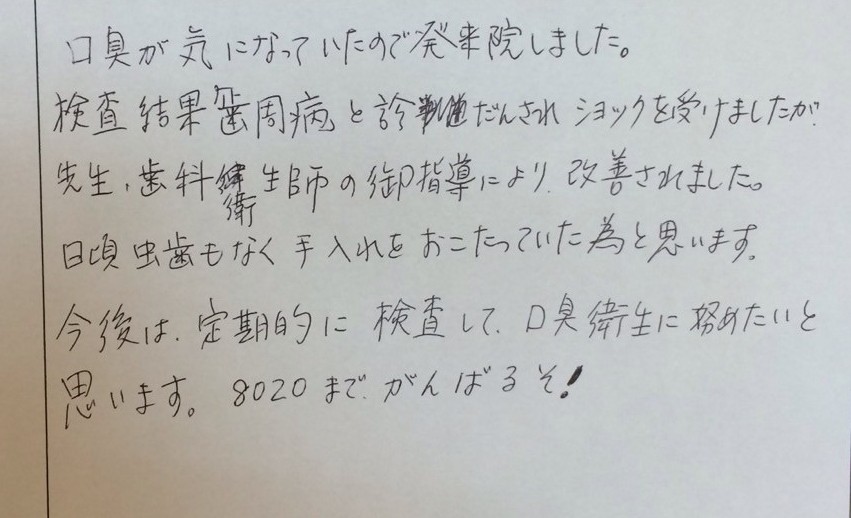 口臭が気になっていたので発来院しました。
検査結果歯周病と診だんされショックを受けましたが
先生、歯科衛生師の御指導により、改善されました。
日頃虫歯もなく手入れをおこたっていた為と思います。
今後は、定期的に検査して、口臭衛生に努めたいと
思います。8020まで、がんばるぞ!